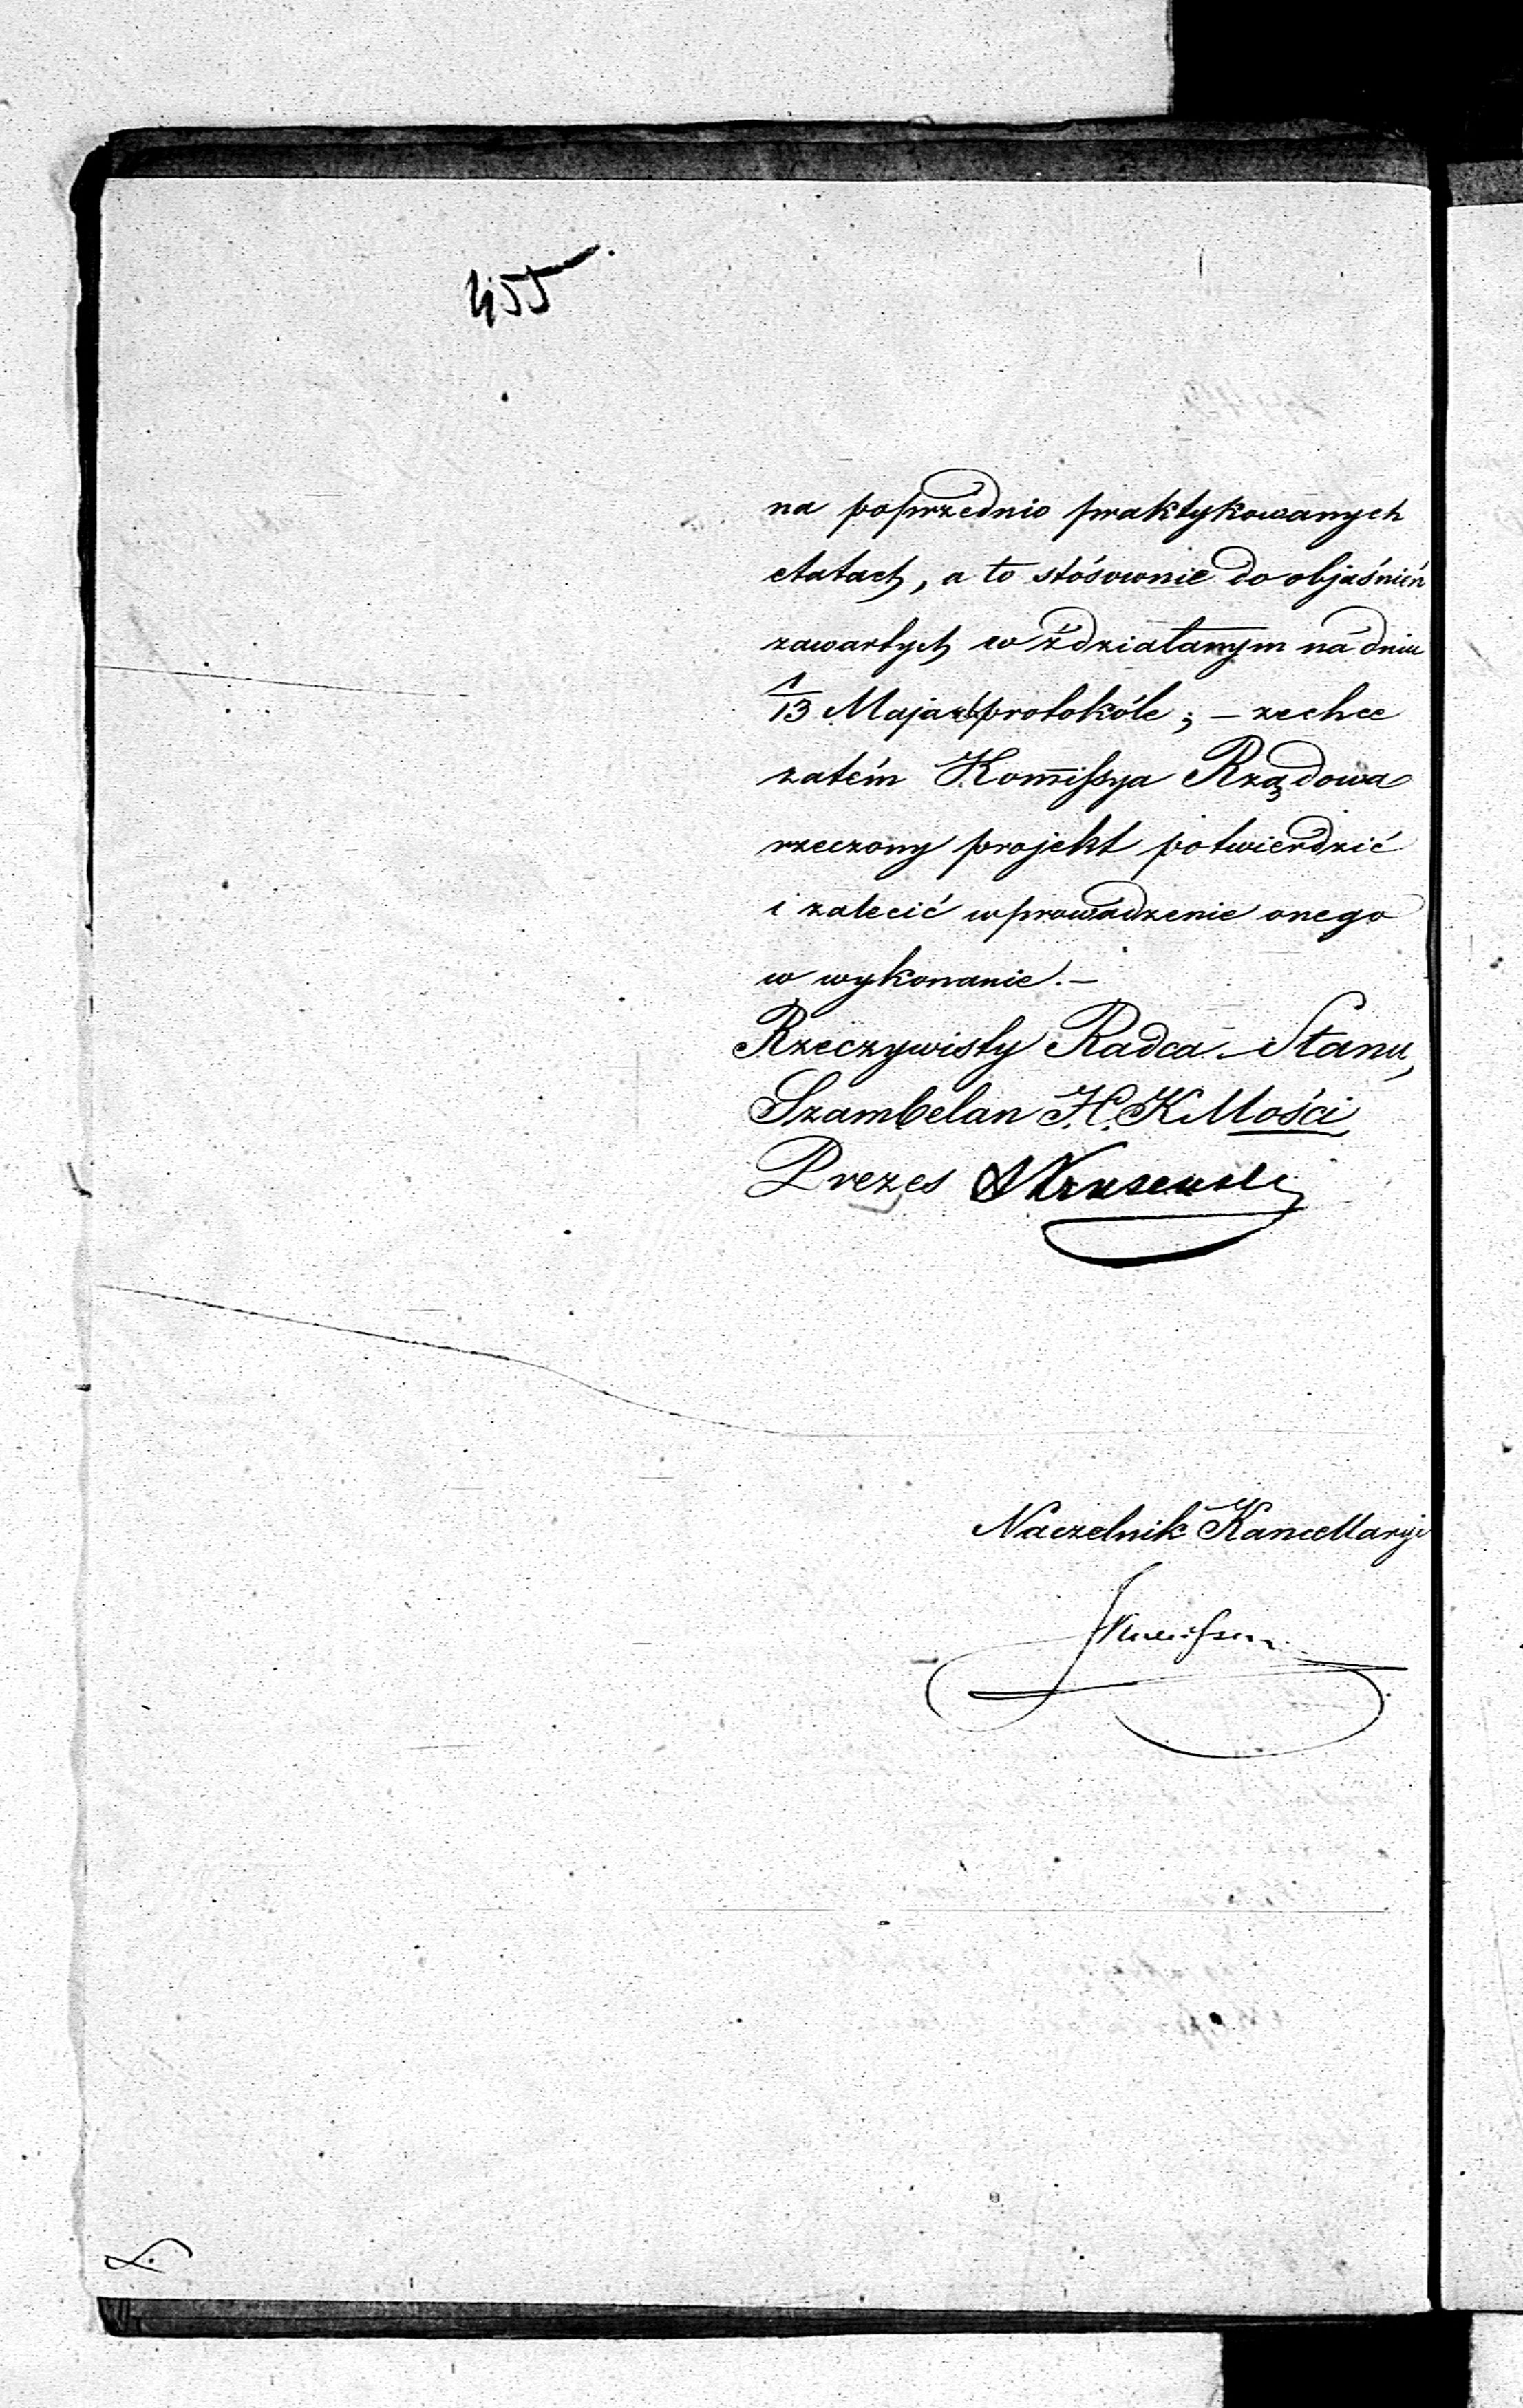 455
na poprzednio praktykowanych
etatach, a to stósownie do objaśnień
zawartych w zdziałanym na dniu
1/13 Maja rb protokóle; – zechce
zatém Kommissya Rządowa
rzeczony projekt potwierdzić
i zalecić wprowadzenie onego
w wykonanie. –
Rzeczywisty Radca Stanu,
Szambelan J.C.K Mości
Prezes
Naczelnik Kancellaryi